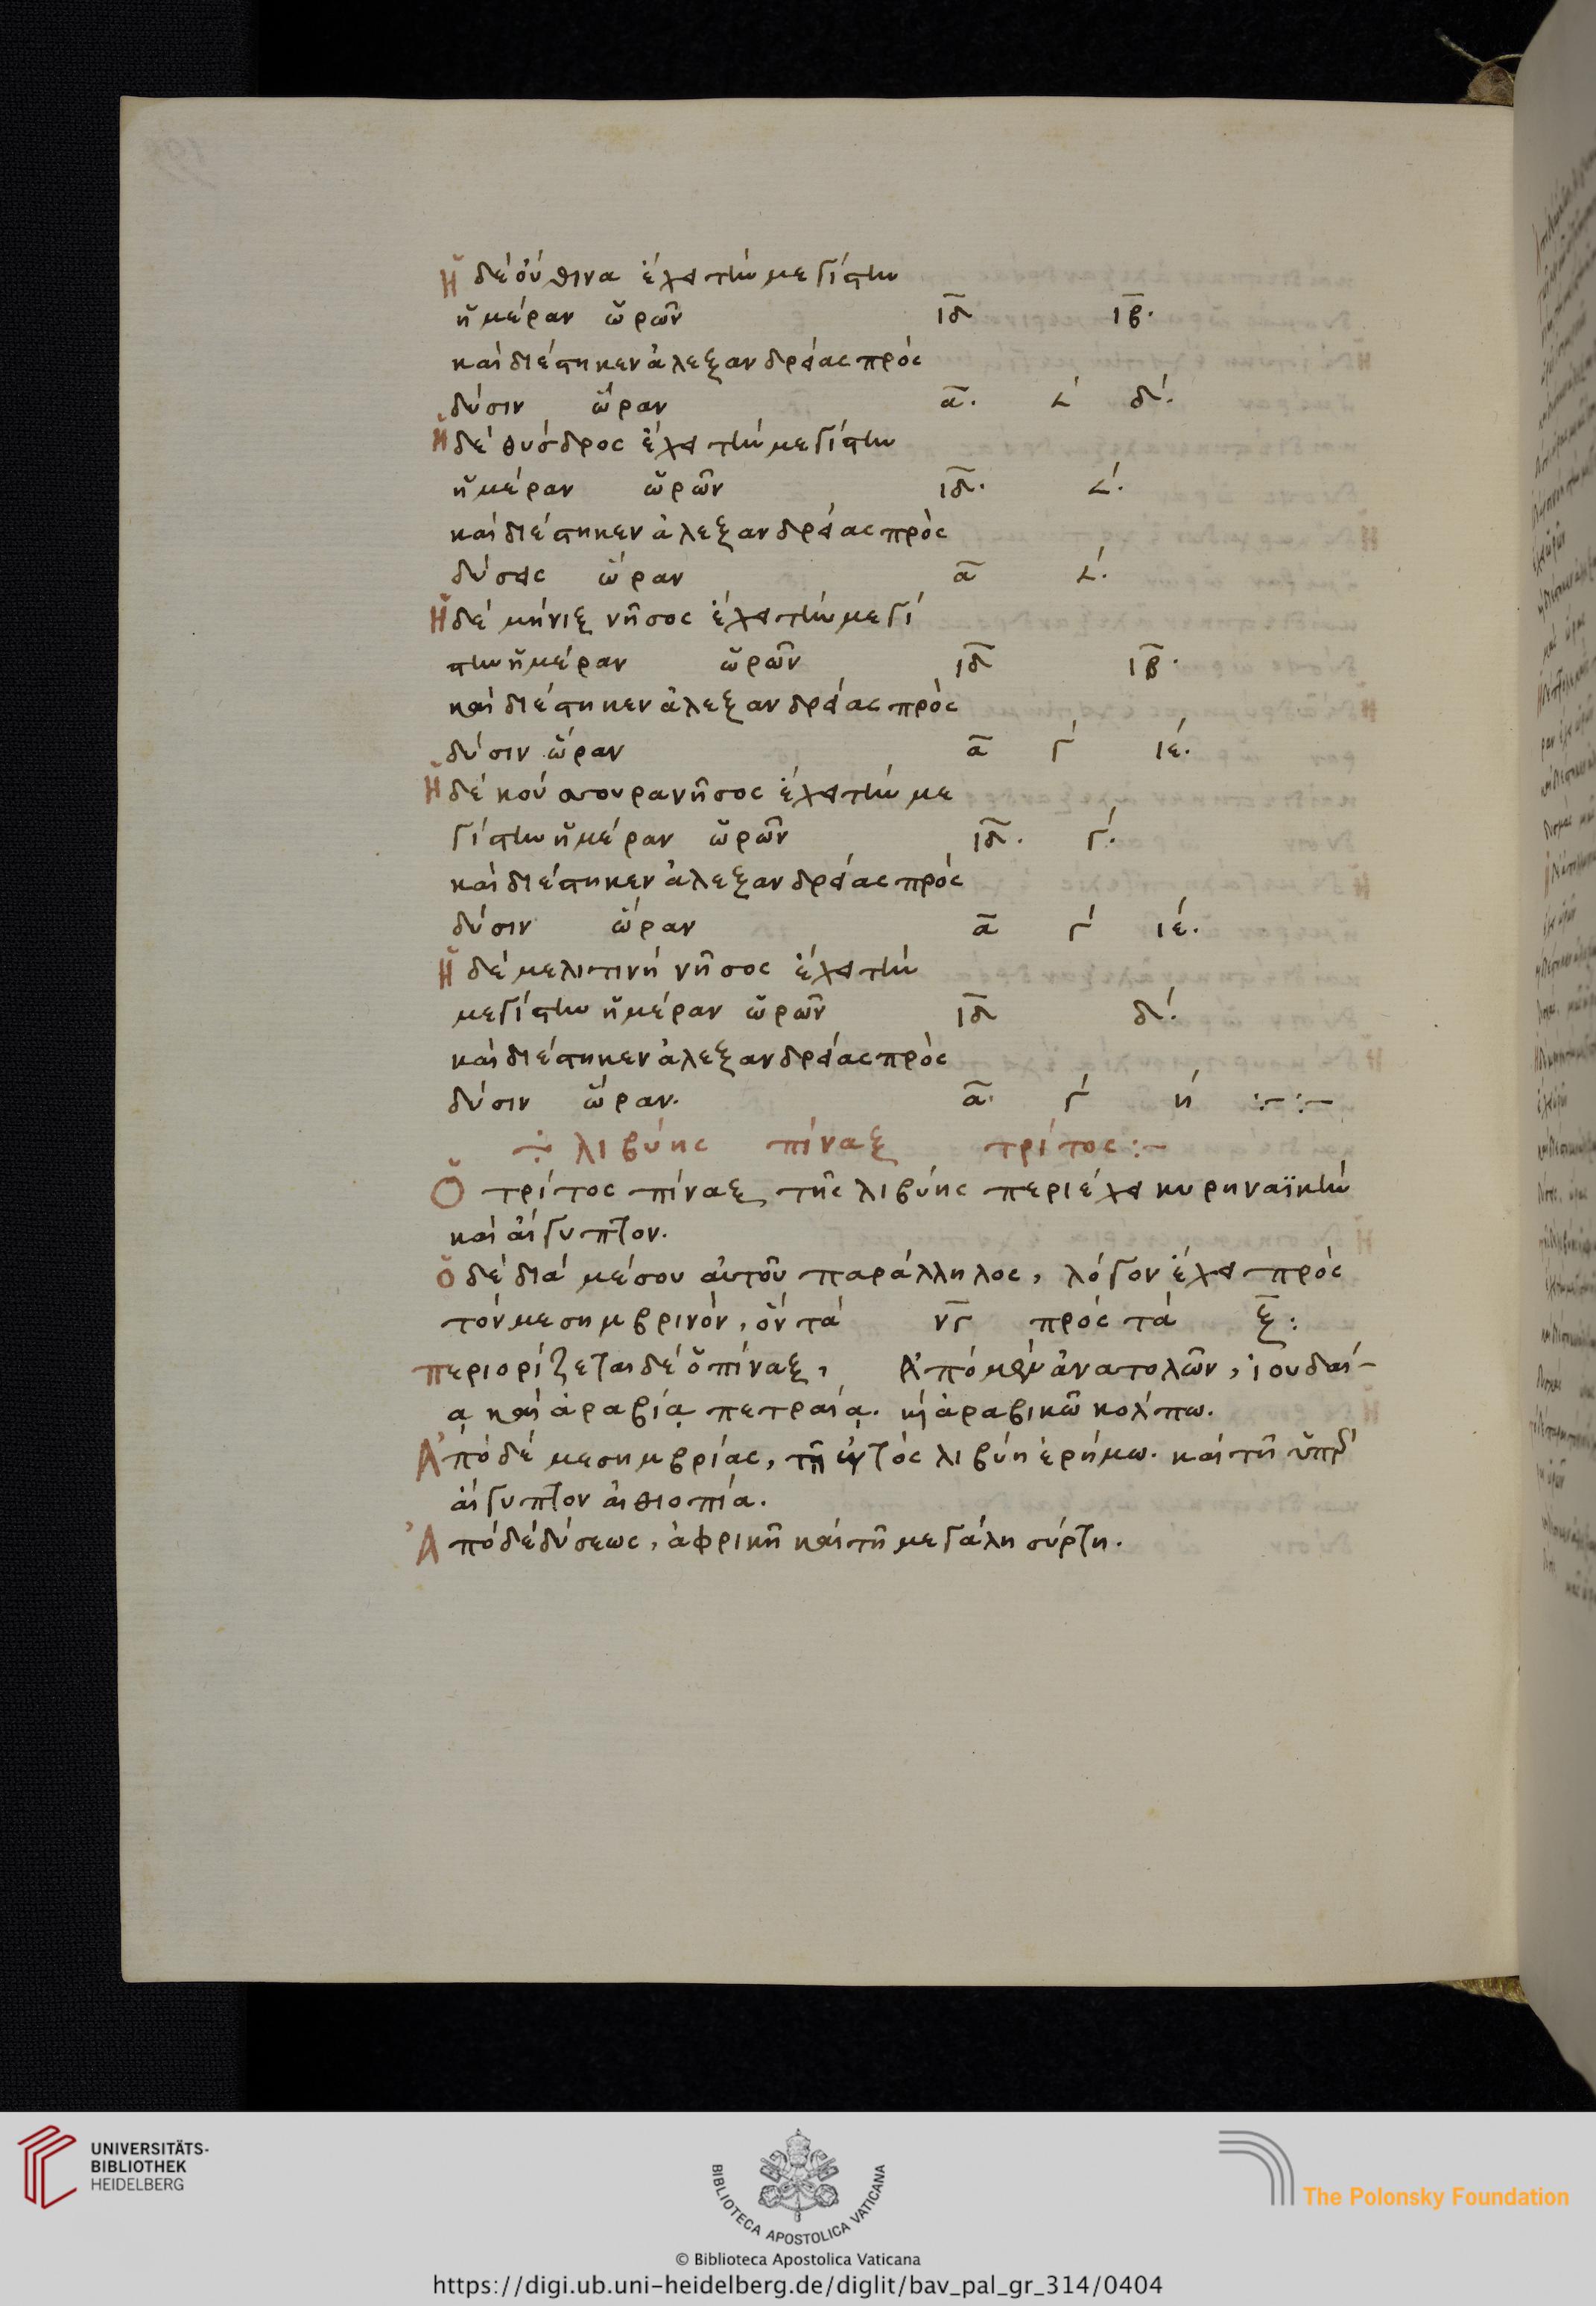 Ἡ δὲ οὔθινα ἔχει τὴν μεγίστην
ἡμέραν ὡρῶν ιδ ιβ.
καὶ διέστηκεν ἀλεξανδρείας πρὸς
δύσιν ὥραν α. 𐅵 δ.
Ἡ δὲ θυσδρος ἔχει τὴν μεγίστην
ἡμέραν ὡρῶν ιδ. 𐅵.
καὶ διέστηκεν ἀλεξανδρείας πρὸς
δύσεις ὥραν α 𐅵.
Ἡ δὲ μήνιξ νῆσος ἔχει τὴν μεγί
στην ἡμέραν ὡρῶν ιδ ιβ.
καὶ διέστηκεν ἀλεξανδρείας πρὸς
δύσιν ὥραν α γ ιε.
Ἡ δὲ νῆσος ἔχει τὴν με
γίστην ἡμέραν ὡρῶν ιδ. γ.
καὶ διέστηκεν ἀλεξανδρείας πρὸς
δύσιν ὥραν α γ ιε.
Ἡ δὲ μελιτινὴ νῆσος ἔχει τὴν
μεγίστην ἡμέραν ὡρῶν ιδ δ.
καὶ διέστηκεν ἀλεξανδρείας πρὸς
δύσιν ὥραν. α. γ η :- :-
λιβύης πίναξ τρίτος :-
Ὁ τρίτος πίναξ τῆς λιβύης περιέχει κυρηναϊκὴν
καὶ αἴγυπτον.
ὁ δὲ διὰ μέσου αὐτοῦ παράλληλος, λόγον ἔχει πρὸς
τὸν μεσημβρινόν, ὃν τὰ νγ πρὸς τὰ ξ :
περιορίζεται δὲ ὁ πίναξ, Ἀπὸ μὲν ἀνατολῶν, ἰουδαί-
ᾳ καὶ ἀραβίᾳ πετραίᾳ. καὶ ἀραβικῶ κόλπω.
Ἀπὸ δὲ μεσημβρίας, τῆ ἐντὸς λιβύη ἐρήμω. καὶ τῆ ὑπὸ
αἴγυπτον αἰθιοπία.
Ἀπὸ δὲ δύσεως, ἀφρικῆ καὶ τῆ μεγάλη σύρτη.
UNIVERSITÄTS-
BIBLIOTHEK
HEIDELBERG
BIBLIOTECA APOSTOLICA VATICANA
The Polonsky Foundation
© Biblioteca Apostolica Vaticana
https://digi.ub.uni-heidelberg.de/diglit/bav_pal_gr_314/0404